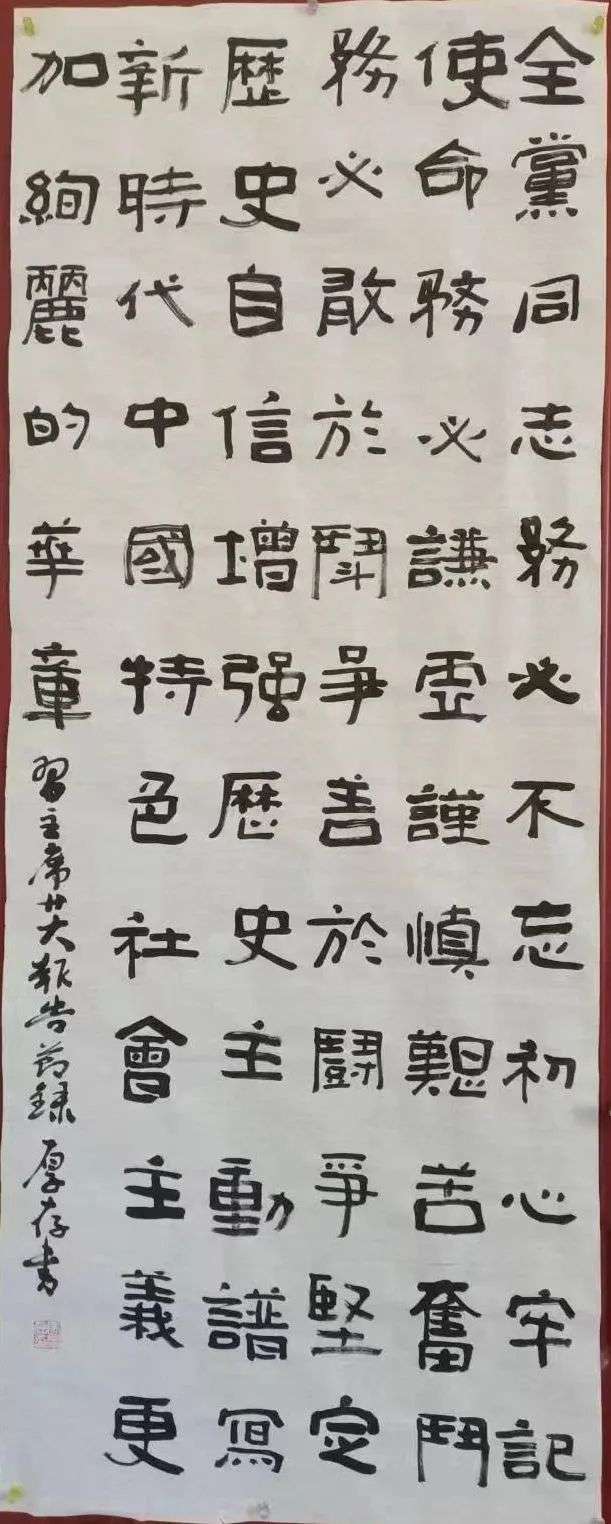 全黨同志務必不忘初心牢記
使命務必謙虛謹慎艱苦奮鬥
務必敢於鬪爭善於鬪爭堅定
歷史自信增强歷史主動譜寫
新時代中國特色社會主義更
加絢麗的華章
習主席廿大報告節録 厚存書